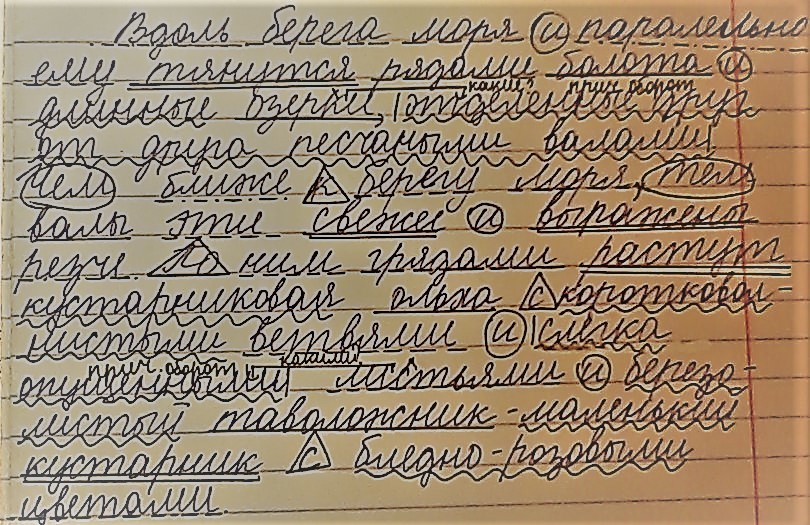 Вдоль берега моря и паралельно
ему тянутся рядами болота и
какие? прич. оборот
длинные озерки, отделенные друг
от друга песчаными валами.
Чем ближе к берегу моря, тем
валы эти свежее и выражены
резче. По ним грядами растут
кустарниковая ольха с коротковол-
нистыми ветвями и слегка
прич. оборот какими?
опушенными листьями и березо-
листый таволожник-маленький
кустарник с бледно-розовыми
цветами.